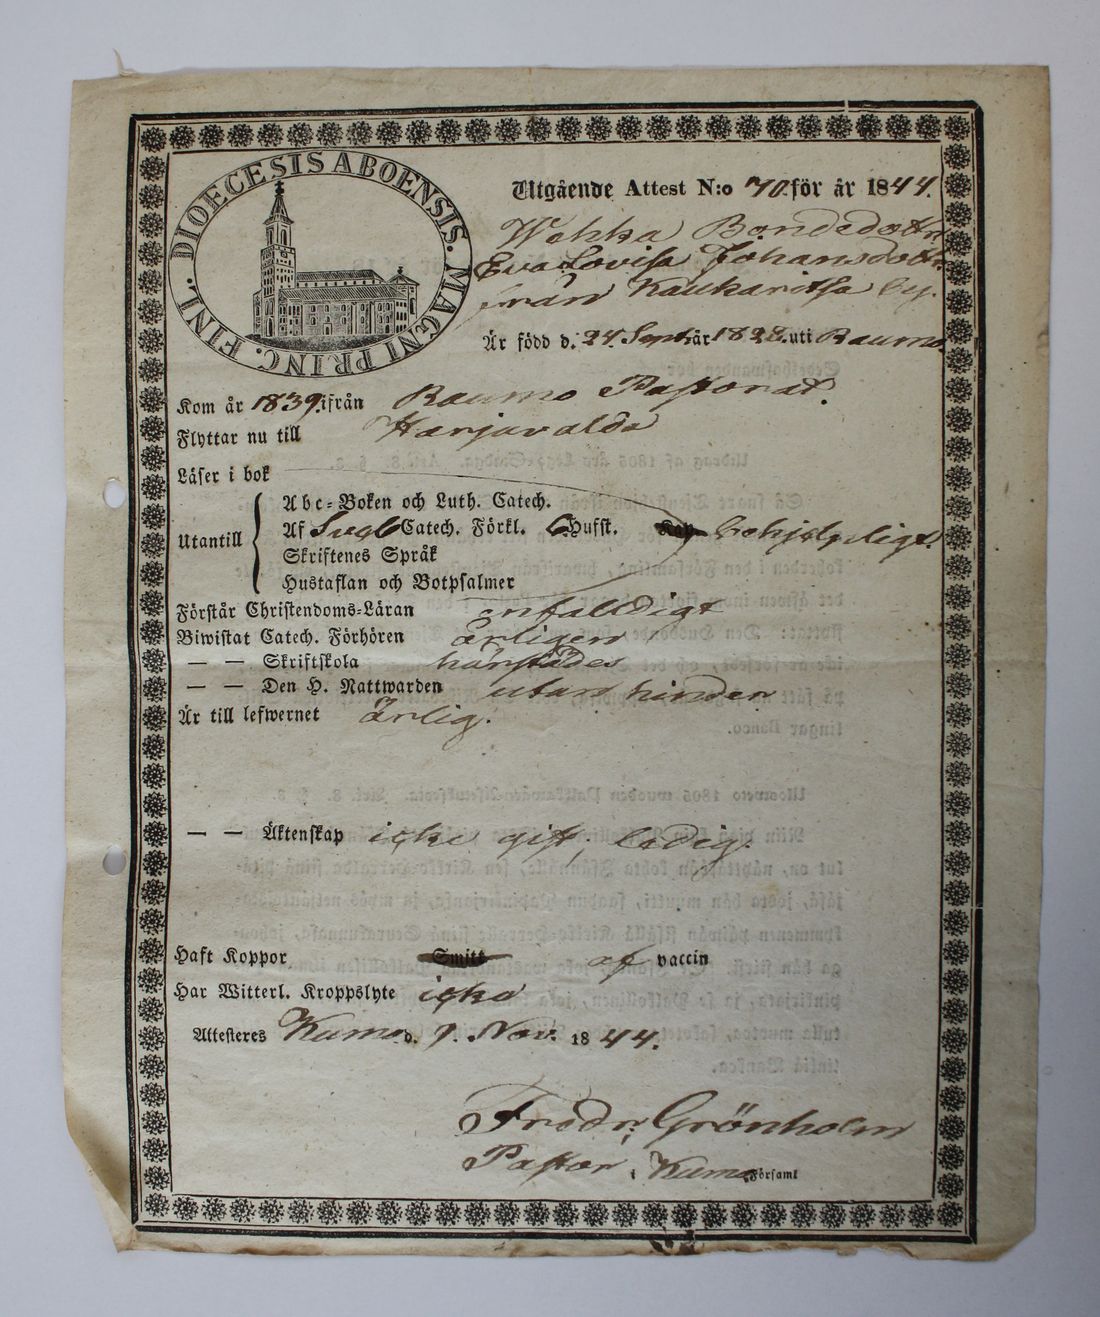 DIOECESIS ABOENSIS. MAGNI PRINC. FINL.
Utgående Attest N:o 70. för år 1844.
Wekka Bondedottr
Eva Lovisa Johansdottr
från Kaukaritsa by.
Är född d. 24. Sept. år 1828. uti Raumo.
Kom år 1839. ifrån Raumo Pastorat.
Flyttar nu till Harjavalda
Läser i bok
Utantill
Abc-Boken och Luth. Catech.
Af Sveb Catech. Förkl. 6 Hufst. behjelpligt.
Skriftenes Språk
Hustaflan och Botpsalmer
Förstår Christendoms-Läran enfaldigt
Biwistat Catech. Förhören årligen
— — Skriftskola härstädes
— — Den H. Nattwarden utan hinder
Är till lefwernet ärlig.
— — Äktenskap icke gift, ledig.
Haft Koppor Smitt af vaccin
Har Witterl. Kroppslyte icke
Attesteres Kumo d. 9. Nov. 1844.
Fredr. Grönholm
Pastor i Kumo Församl